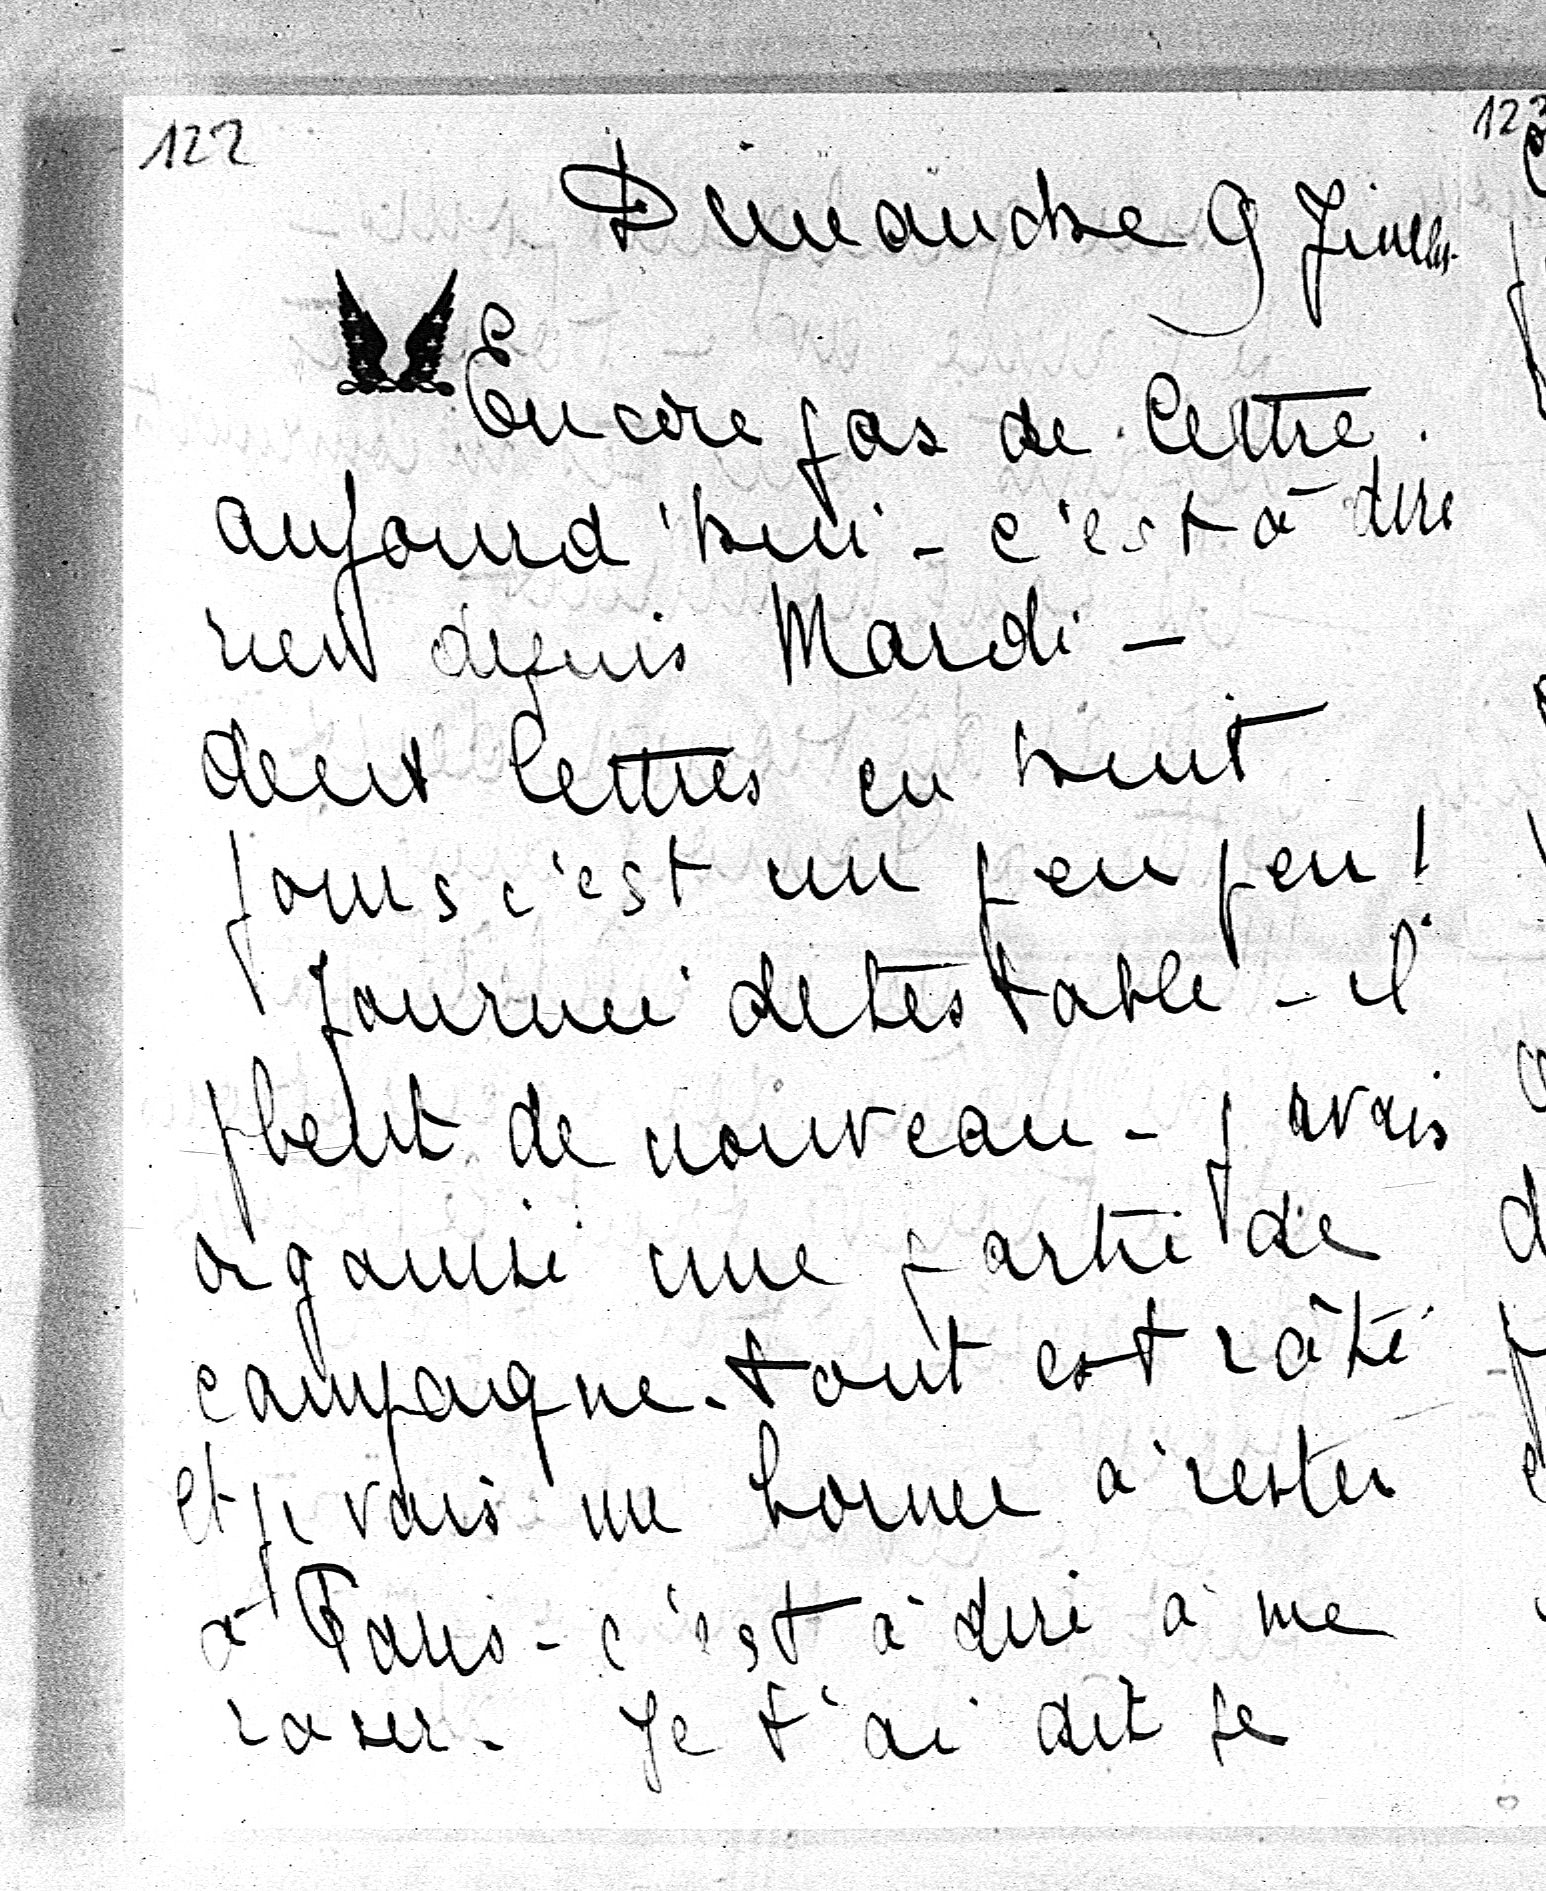 122
123
Dimanche 9 Juillet
Encore pas de lettre.
aujourd'hui - c'est à dire
rien depuis Mardi -
deux lettres en huit
jours c'est un peu peu !
Journée detestable - il
pleut de nouveau - j'avais
organisé une partie de
campagne - tout est râté
et je vais me borner à rester
à Paris - c'est à dire à me
raser - Je t'ai dit je